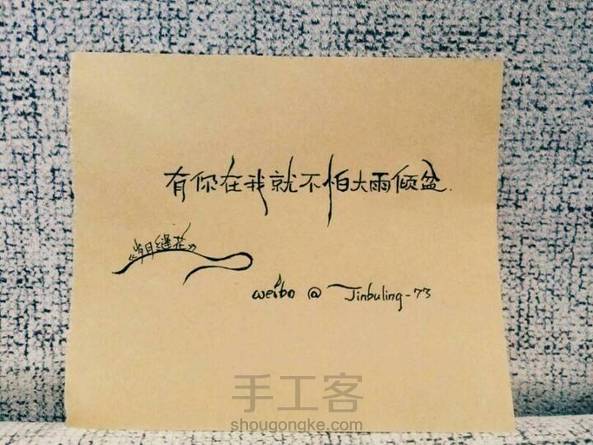 有你在我就不怕大雨倾盆.
《岁月缝花》
weibo @ Jinbuling-73
手工客
shougongke.com